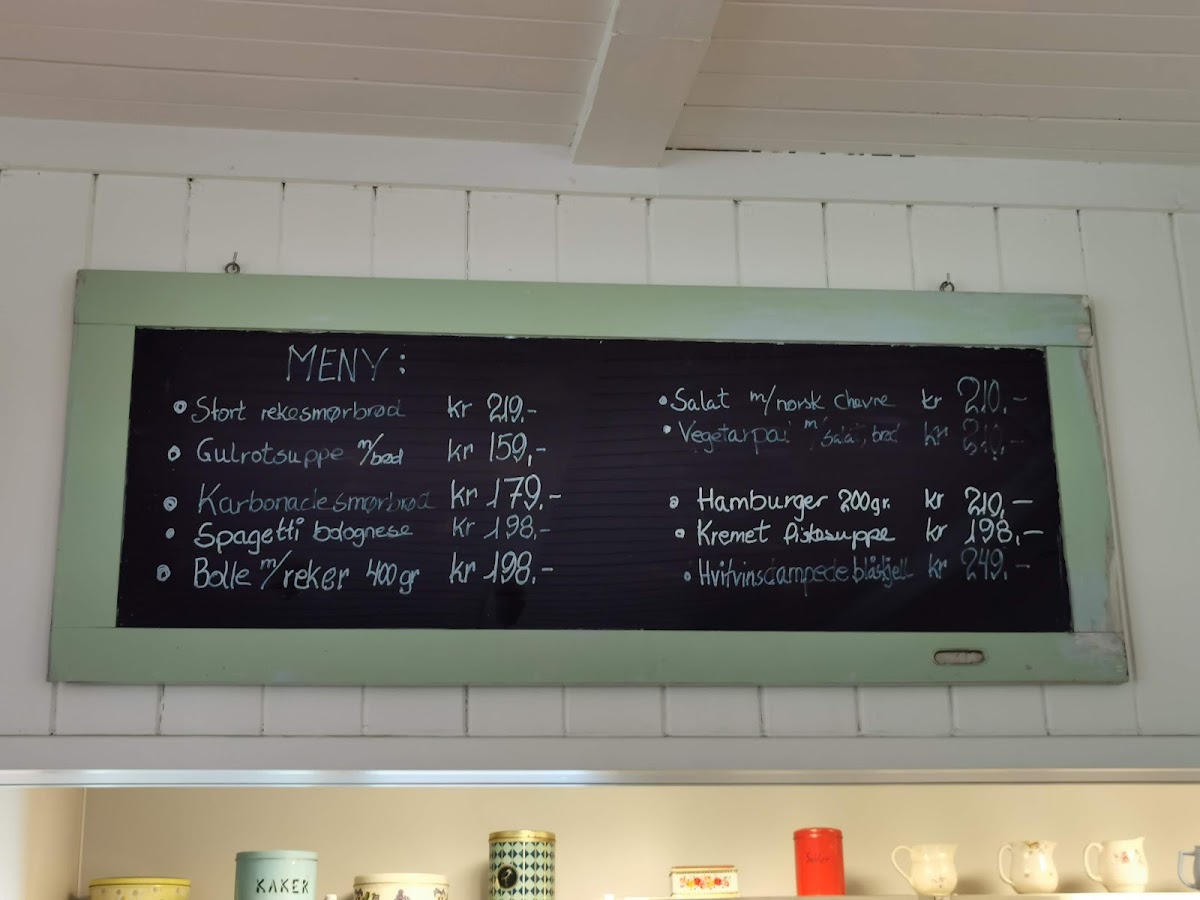 MENY:
• Stort rekesmørbrød kr 219.-
• Gulrotsuppe m/brød kr 159,-
• Karbonadesmørbrød kr 179.-
• Spagetti bolognese kr 198.-
• Bolle m/reker 400gr kr 198.-
• Salat m/norsk chevre kr 210.-
• Vegetarpai m/salat, brød kr 210.-
• Hamburger 200gr. kr 210,-
• Kremet fiskesuppe kr 198,-
• Hvitvinsdampede blåskjell kr 249.-
KAKER